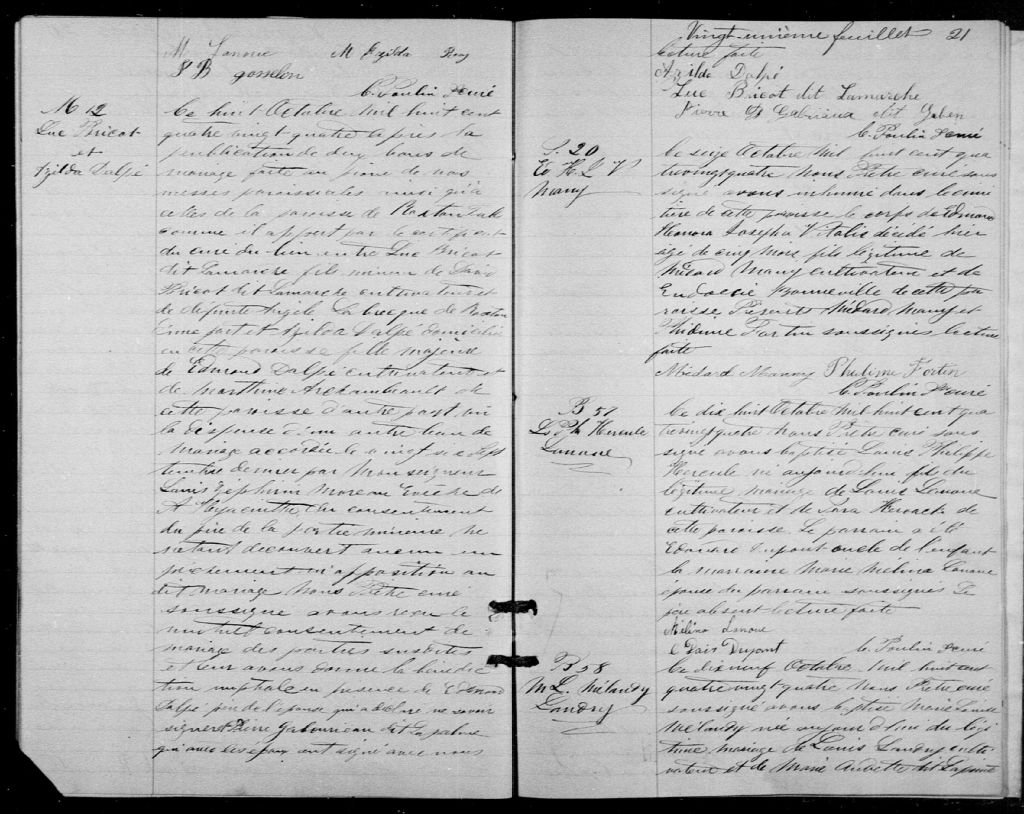 M Lanoue M Exilda Roy
P B gosselin
C. Poulin Ptre curé
M 12
Luc Bricot
et
Azilda Dalpé
Le huit Octobre Mil huit cent
quatre vingt quatre après la
publication de deux bans de
mariage faite au prône de nos
messes paroissiales ainsi qu'à
celles de la paroisse de Roxton
comme il appert par le certificat
du curé du lieu entre Luc Bricot
dit Lamarche fils mineur de David
Bricot dit Lamarche cultivateur et
de défunte Angèle Labrecque de Roxton
d'une part et Azilda Dalpé domiciliée
en cette paroisse fille majeure
de Edmond Dalpé cultivateur et
de Marthine Archambeault de
cette paroisse d'autre part vu
la dispense d'un autre ban de
mariage accordée le vingt six Sept
tembre dernier par Monseigneur
Louis Zéphirin Moreau Evêque de
St Hyacinthe, du consentement
du père de la partie mineure ne
s'étant découvert aucun em
pêchement ni opposition au
dit mariage Nous Prêtre curé
soussigné avons reçu le
mutuel consentement de
mariage des parties susdites
et leur avons donné la bénédic
tion nuptiale en présence de Edmond
Dalpé père de l'épouse qui a déclaré ne savoir
signer et Pierre Gaboriau dit Lapalme
qui avec les époux ont signé avec nous
Vingt-unième feuillet 21
lecture faite
Azilda Dalpé
Luc Bricot dit Lamarche
Pierre Gaboriau dit
C. Poulin Ptre curé
S. 20
Ed H. L V
Many
Le seize Octobre Mil huit cent qua
trevingt quatre Nous Prêtre curé sous
signé avons inhumé dans le cime
tière de cette paroisse le corps de Edmond
Eleonora Joseph Vitalis décédé hier
agé de cinq mois fils légitime de
Médard Many cultivateur et de
Eudoxie Bonneville de cette pa
roisse. Présents Médard Many et
Philime Fortin soussignés lecture
faite
Médard Manny Philime Fortin
C. Poulin Ptre curé
B 57
Ls Ph Hercule
Lanoue
Le dix huit Octobre mil huit cent qua
trevingt quatre Nous Prêtre curé sous
signé avons baptisé Louis Philippe
Hercule né aujourd'hui fils du
légitime mariage de Louis Lanoue
cultivateur et de de
cette paroisse. Le parrain a été
Edouard Dupont oncle de l'enfant
la marraine Marie Mélina Lanoue
épouse du parrain soussignés Le
père absent. Lecture faite
Mélina Lanoue
Dupont C. Poulin Ptre curé
B 58
M L. Mélandy
Landry
Le dix neuf Octobre Mil huit cent
quatre vingt quatre Nous Prêtre curé
soussigné avons baptisé Marie Louise
Mélandy née aujourd'hui du légi
time mariage de Louis Landry culti
vateur et de Marie Audette dit Lapointe